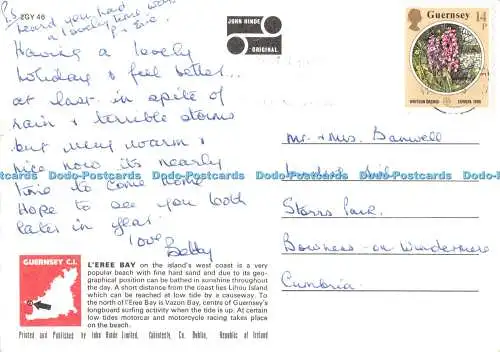 P.S. heard you had
a lovely time with
P. & Eric.
2GY 46
Having a lovely
holiday & feel better...
at last in spite of
rain & terrible storms
but very warm &
nice now its nearly
time to come home
Hope to see you both
later in year.
love
Betty
JOHN HINDE
ORIGINAL
Guernsey 14
P
EUROPA 1986
Mr. & Mrs. Banwell
Storrs Park.
Bowness-on-Windermere
Cumbria.
Dodo-Postcards Dodo-Postcards Dodo-Postcards Dodo-Postcards
GUERNSEY C.I.
L'EREE BAY on the island's west coast is a very
popular beach with fine hard sand and due to its geo-
graphical position can be bathed in sunshine throughout
the day. A short distance from the coast lies Lihou Island
which can be reached at low tide by a causeway. To
the north of l'Eree Bay is Vazon Bay, centre of Guernsey's
longboard surfing activity when the tide is up. At certain
low tides motorcar and motorcycle racing takes place
on the beach.
Printed and Published by John Hinde Limited, Cabinteely, Co. Dublin, Republic of Ireland